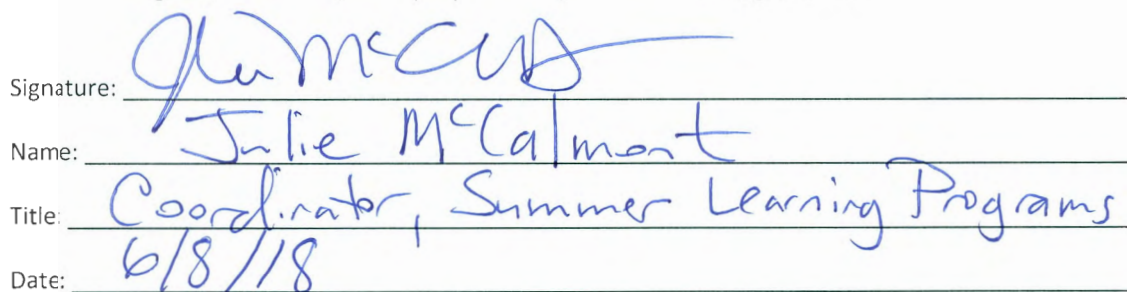 Signature: Julie McCalmont
Name: Julie McCalmont
Title: Coordinator, Summer Learning Programs
Date: 6/8/18